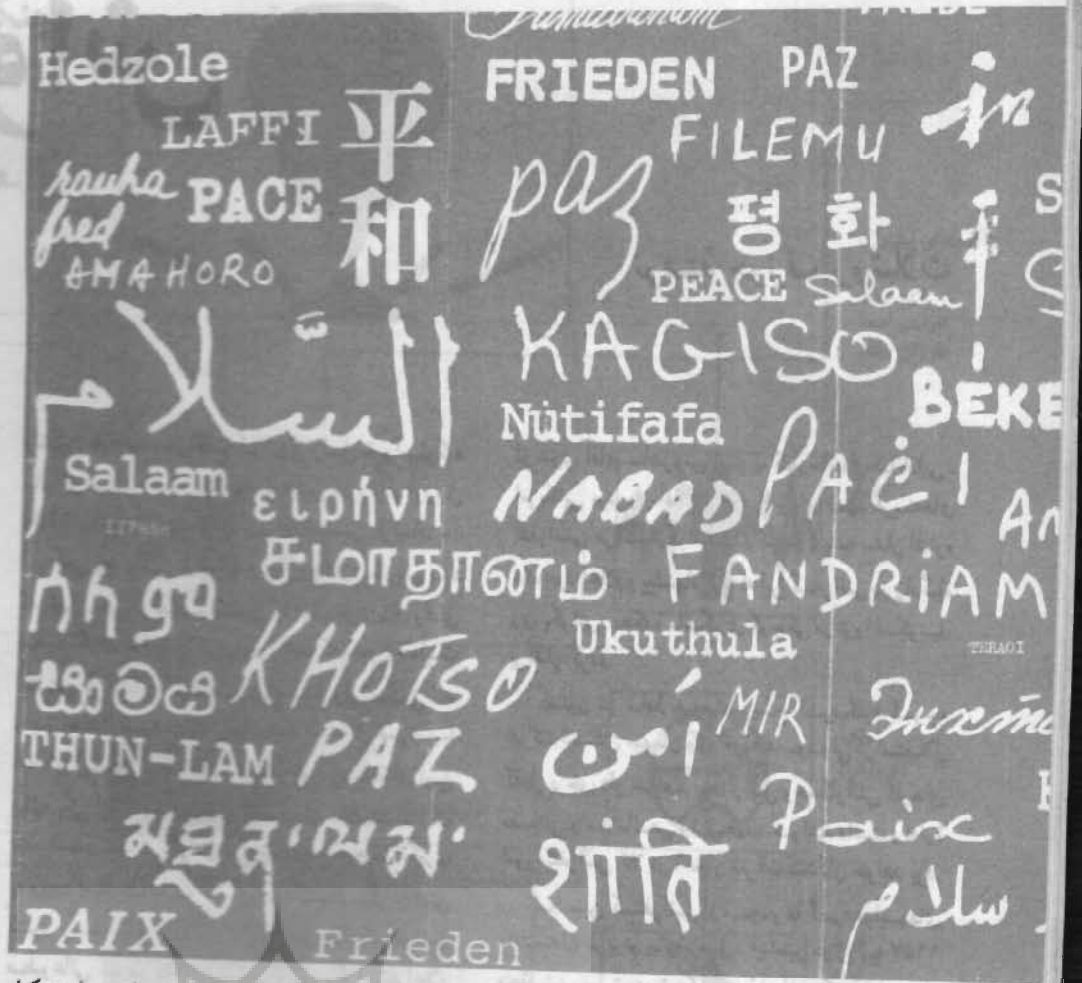 Hedzole
FRIEDEN
PAZ
LAFFI
平和
FILEMU
rauha
fred
PACE
paz
평화
AMAHORO
PEACE
Salaam
السّلام
KAGISO
BEKE
Nutifafa
Salaam
ειρήνη
NABAD
PAĊI
சமாதானம்
FANDRIAM
ሰላም
Ukuthula
TERAOI
සාමය
KHOTSO
THUN-LAM
PAZ
أمن
MIR
Paix
མཐུན་ལམ་
शांति
سلام
PAIX
Frieden